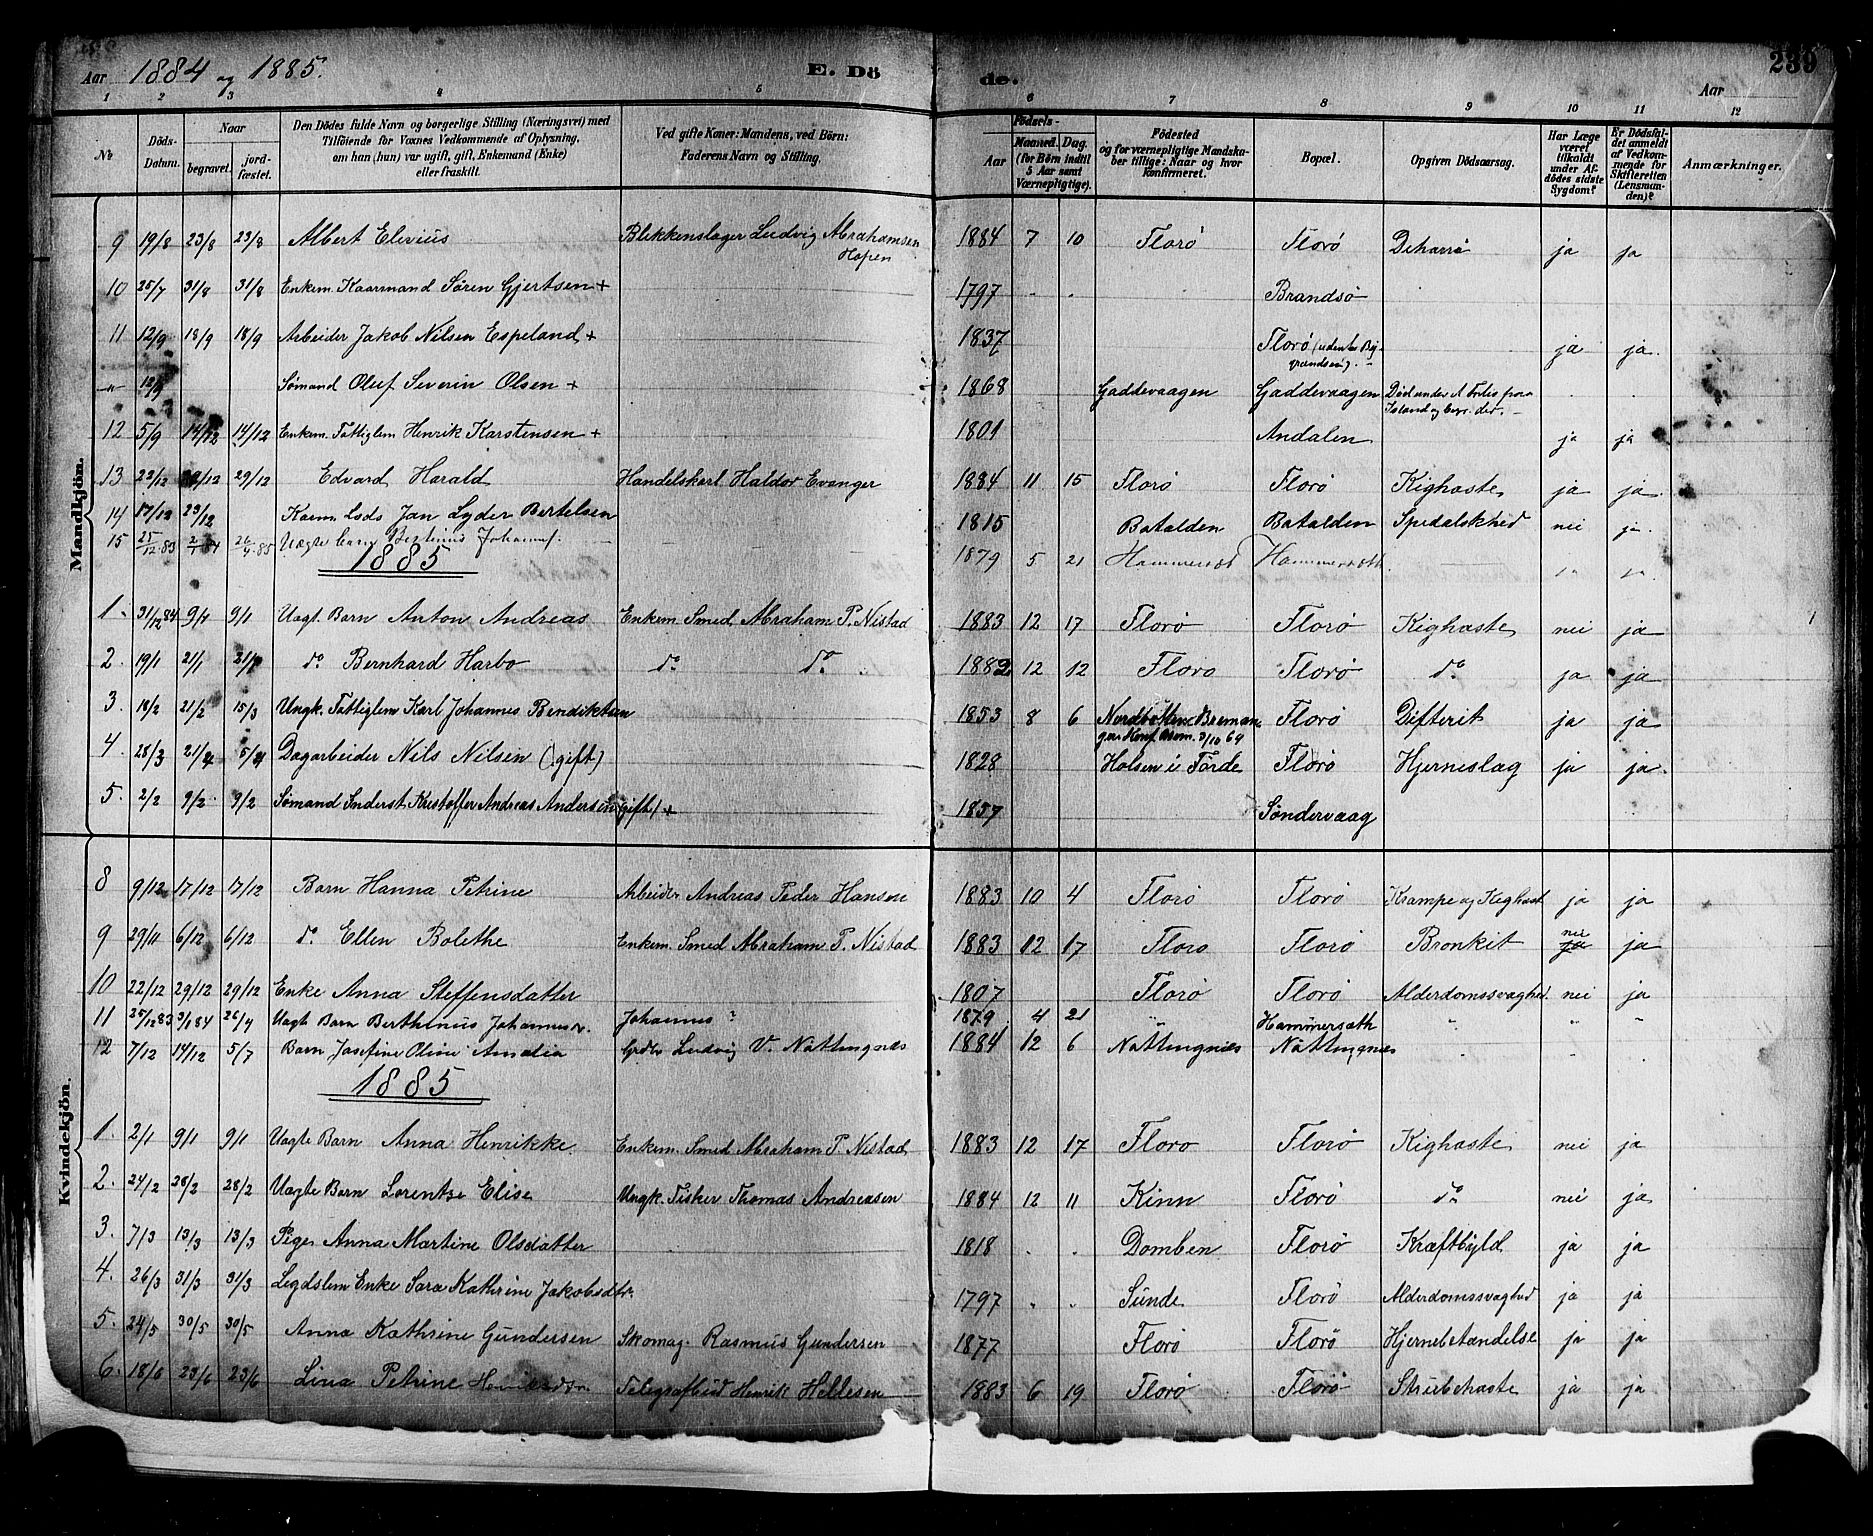 Aar 1884 og 1885. E. Döde. Aar 239
1 2 3 4 5 6 7 8 9 10 11 12
No | Döds-Datum. | Naar begravet. | jord-fæstet. | Den Dödes fulde Navn og borgerlige Stilling (Næringsvei) med Tilföiende for Voxnes Vedkommende af Oplysning, om han (hun) var ugift, gift, Enkemand (Enke) eller fraskilt. | Ved gifte Koner: Mandens, ved Börn: Faderens Navn og Stilling. | Födsels- Aar | Maaned. Dag. (for Börn indtil 5 Aar samt Værnepligtige). | Födested og for værnepligtige Mandskaber tillige: Naar og hvor konfirmeret. | Bopæl. | Opgiven Dödsaarsag. | Har Læge været tilkaldt under Afdödes sidste Sygdom? | Er Dödsfaldet anmeldt af Vedkommende for Skifteretten (Lensmanden)? | Anmærkninger.
Mandkjön.
9 19/8 23/8 23/8 Albert Elevius Blikkenslager Ludvig Abrahamsen Hopen 1884 7 10 Florø Florø ja ja
10 25/7 31/8 31/8 Enkem. Kaarmand Søren Gjertsen + 1797 " " Brandsø
11 12/9 18/9 18/9 Arbeider Jakob Nilsen Espeland + 1837 Florø (udenfor Bygrændsen). ja ja.
" Sømand Oluf Severin Olsen + 1868 Gaddevaagen Gaddevaagen Død under fra Island og begr. der.
12 5/9 14/12 14/12 Enkem. Fattiglem Henrik Karstensen + 1801 Andalen ja ja
13 29/12 29/12 Edvard Harald Handelskarl Haldor Evanger 1884 11 15 Florø Florø Kighoste ja ja
14 17/12 23/12 Kaarm. Lods Jan Lyder Bertelsen 1815 Batalden Batalden Spedalskhed nei ja
15 25/12 83 2/1 84 26/4 85 Uægte barn Johannes. 1879 5 21
1885
1. 31/12 84 9/1 9/1 Uægt. Barn Anton Andreas Enkem. Smed Abraham P. Nistad 1883 12 17 Florø Florø Kighoste nei ja
2. 19/1 21/1 21/1 do Bernhard Harbo do do 1882 12 12 Florø Florø do ja ja
3. 18/2 21/2 15/3 Ungk. Fattiglem Karl Johannes Bendiktsen 1853 8 6 Nordbotten Bremanger Konf. 3/10 69 Florø Difterit ja ja
4. 28/3 21/4 5/4 Dagarbeider Nils Nilsen (gift) 1828 Holsen i Førde Florø Hjerneslag ja ja.
5. 2/2 9/2. 9/2 Sømand Inderst. Kristoffer Andreas Andersen (gift) + 1857 Søndervaag
Kvindekjön.
8 9/12 17/12 17/12 Barn Hanna Petrine Arbeider Andreas Peder Hansen 1883 10 4 Florø Florø Krampe og Kighost ja ja
9 29/11 6/12 6/12 do Ellen Bolethe Enkem. Smed Abraham P. Nistad 1883 12 17 Florø Florø Bronkit nei ja ja
10 22/12 29/12 29/12 Enke Anna Steffensdatter 1807 Florø Florø Alderdomssvaghed nei ja
11 25/12 83 3/1 84 26/4 Uægt Barn Berthinus Johannesdr. Johannes ? 1879 4 21 " Hammersæth " " "
12 7/12 14/12 5/7 Barn Josefine Oline Amalia Grdbr Ludvig V. Nøttingnes 1884 12 6 Nøttingnes Nøttingnes
1885
1. 2/1 9/1 9/1 Uægte Barn Anna Henrikke. Enkem. Smed Abraham P. Nistad 1883 12 17 Florø Florø Kighoste nei ja
2. 24/2 28/2 28/2 Uægte Barn Lorentze Elise Ungk. Fisker Thomas Andreasen 1884 12 11 Kinn Florø do nei ja
3. 7/3 13/3 13/3 Pige Anna Martine Olsdatter 1818 " " Domben Florø Kræftbyld ja ja
4. 26/3 31/3 31/3 Legdslem Enke Sara Kathrine Jakobsdtr. 1797 " " Sunde Florø Alderdomssvaghed ja ja
5. 24/5 30/5 30/5 Anna Kathrine Gundersen Skomag. Rasmus Gundersen 1877 Florø Florø Hjernebetændelse ja ja
6. 18/6 23/6 23/6 Lina Petrine Telegrafbud Henrik Hellesen 1883 6 19 Florø Florø Strubehoste ja ja